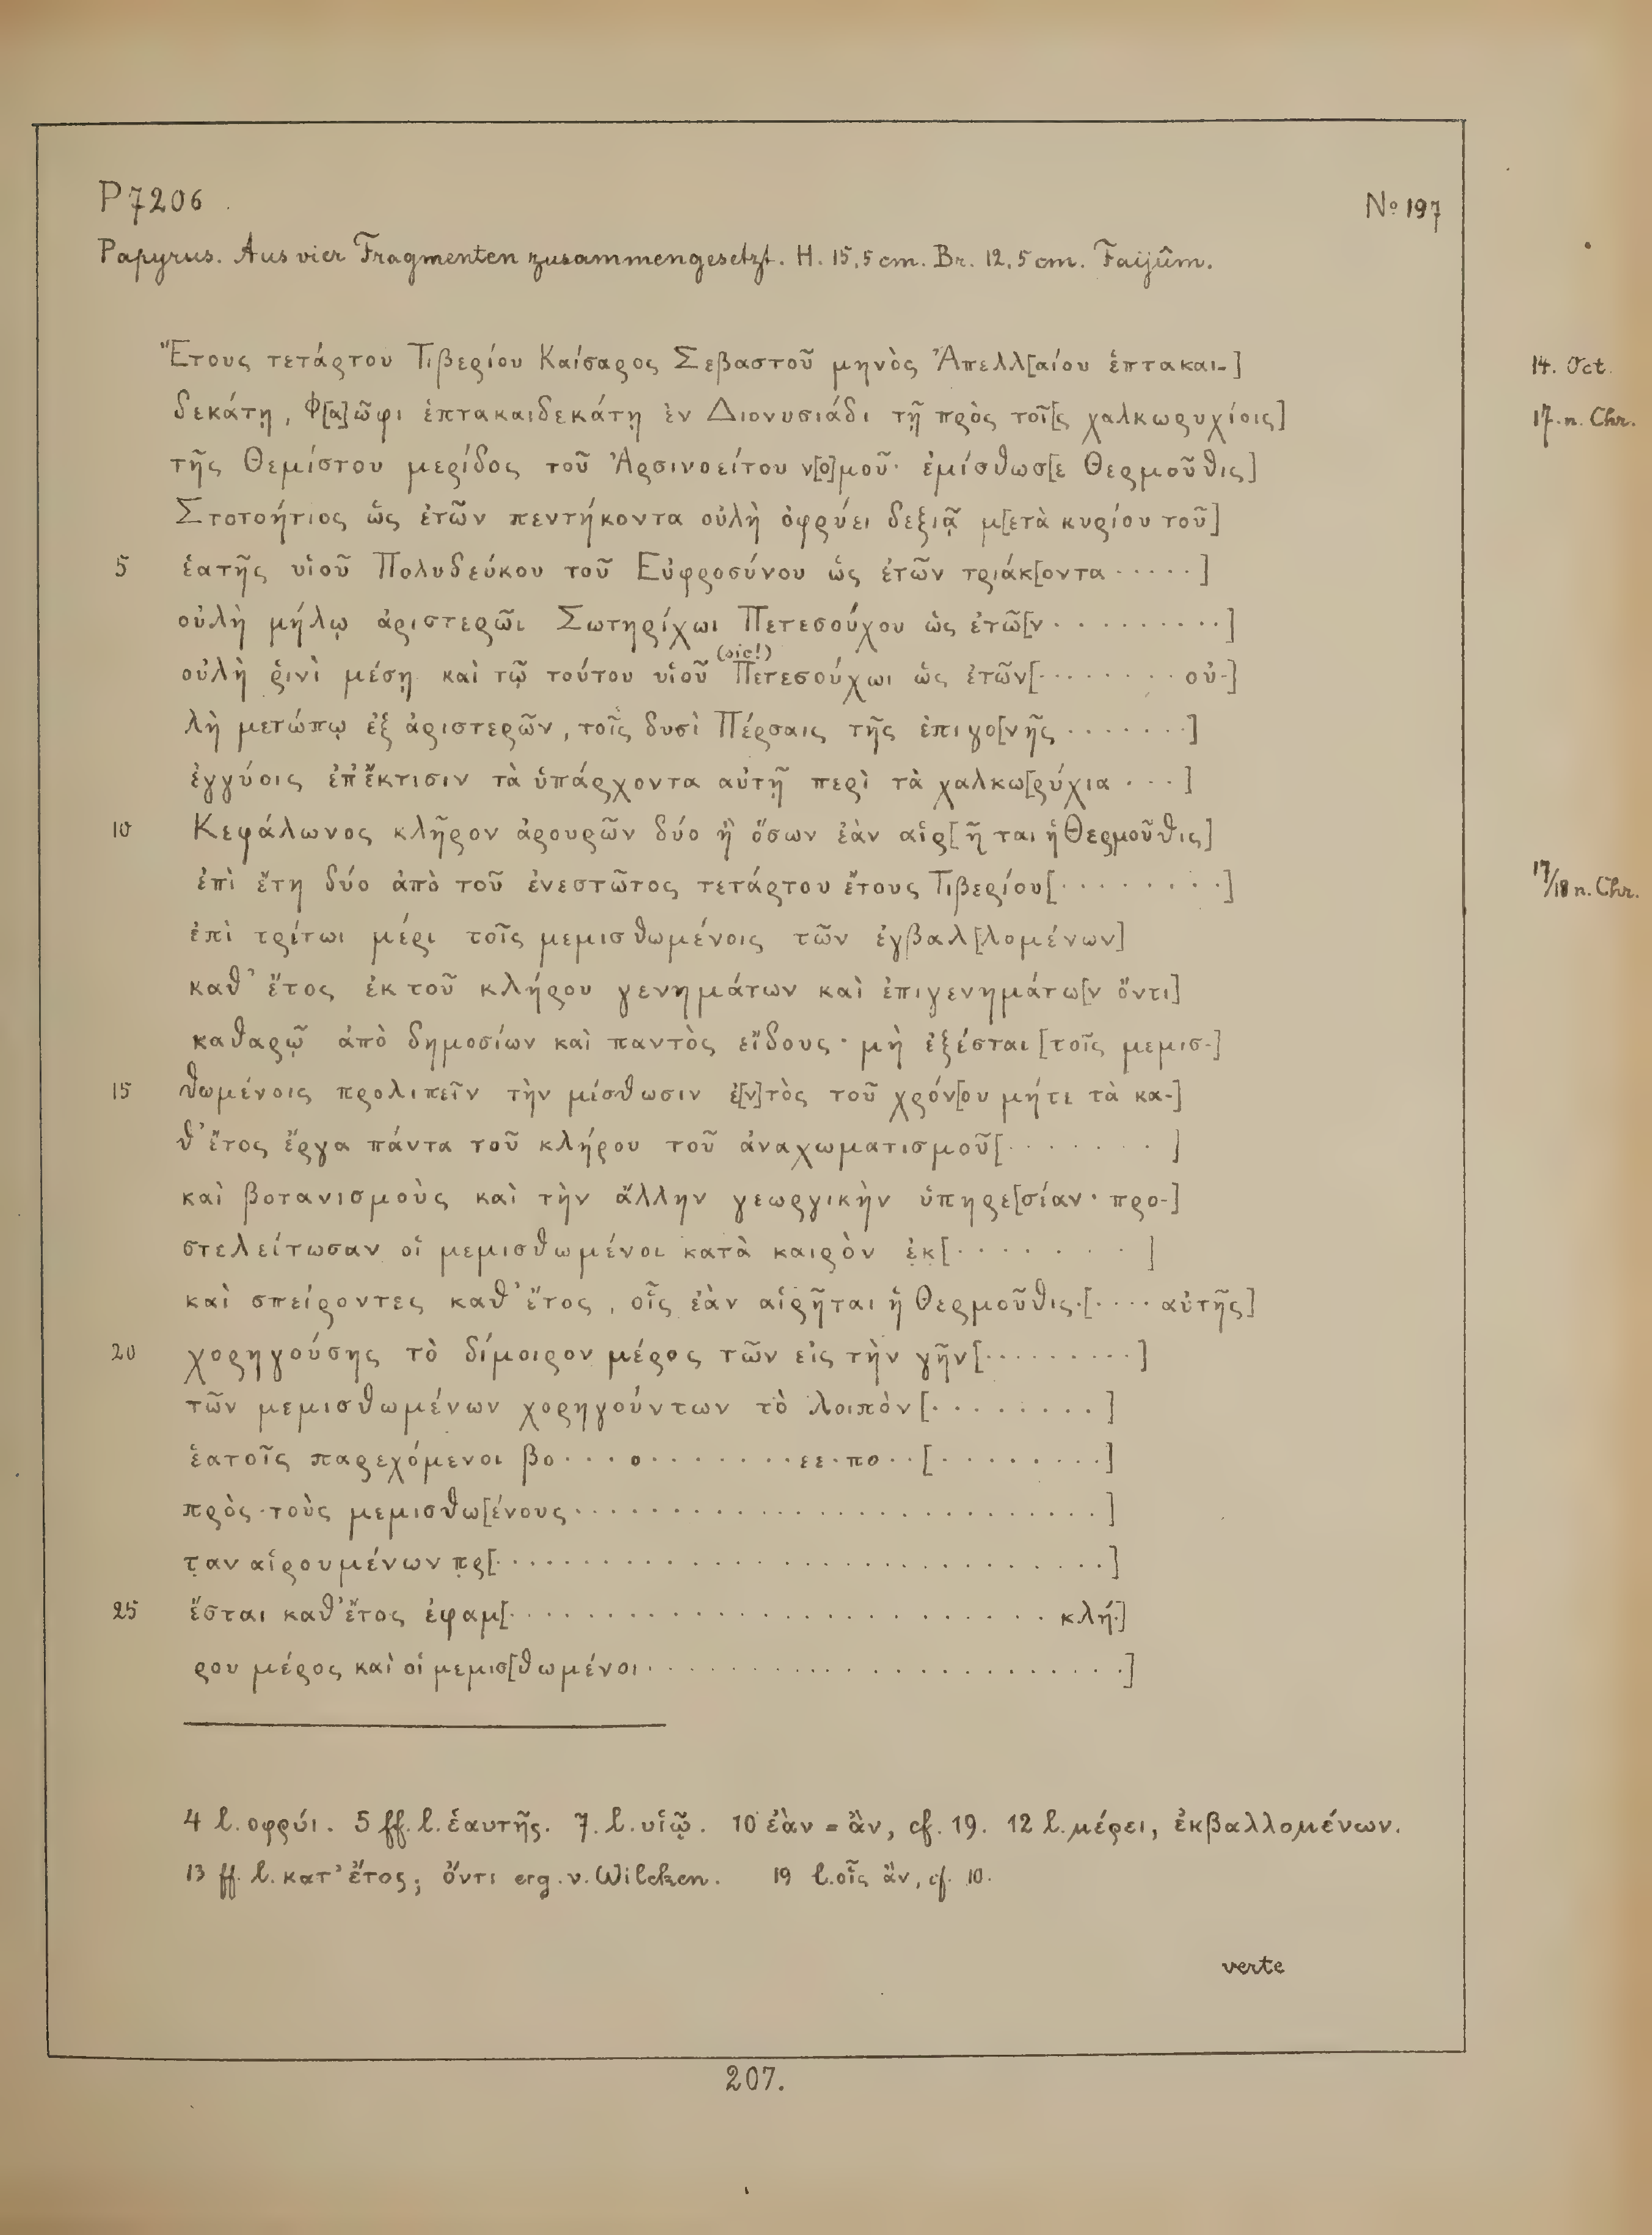 P 7206
No 197
Papyrus. Aus vier Fragmenten zusammengesetzt. H. 15,5 cm. Br. 12,5 cm. Faijûm.
Ἔτους τετάρτου Τιβερίου Καίσαρος Σεβαστοῦ μηνὸς Ἀπελλ[αίου ἑπτακαι-] 14. Oct.
δεκάτῃ, Φ[α]ῶφι ἑπτακαιδεκάτῃ ἐν Διονυσιάδι τῇ πρὸς τοῖ[ς χαλκωρυχίοις] 17. n. Chr.
τῆς Θεμίστου μερίδος τοῦ Ἀρσινοείτου ν[ο]μοῦ· ἐμίσθωσ[ε Θερμοῦθις]
Στοτοήτιος ὡς ἐτῶν πεντήκοντα οὐλὴ ὀφρύει δεξιᾷ μ[ετὰ κυρίου τοῦ]
5 ἑατῆς υἱοῦ Πολυδεύκου τοῦ Εὐφροσύνου ὡς ἐτῶν τριάκ[οντα ·····]
οὐλὴ μήλῳ ἀριστερῶι Σωτηρίχωι Πετεσούχου ὡς ἐτῶ[ν ··········]
(sic!)
οὐλὴ ῥινὶ μέσῃ καὶ τῷ τούτου υἱοῦ Πετεσούχωι ὡς ἐτῶν[········ οὐ-]
λὴ μετώπῳ ἐξ ἀριστερῶν, τοῖς δυσὶ Πέρσαις τῆς ἐπιγο[νῆς ·······]
ἐγγύοις ἐπ' ἔκτισιν τὰ ὑπάρχοντα αὐτῇ περὶ τὰ χαλκω[ρύχια ···]
10 Κεφάλωνος κλῆρον ἀρουρῶν δύο ἢ ὅσων ἐὰν αἱρ[ῆται ἡ Θερμοῦθις]
ἐπὶ ἔτη δύο ἀπὸ τοῦ ἐνεστῶτος τετάρτου ἔτους Τιβερίου[········] 17/18 n. Chr.
ἐπὶ τρίτωι μέρι τοῖς μεμισθωμένοις τῶν ἐγβαλ[λομένων]
καθ' ἔτος ἐκ τοῦ κλήρου γενημάτων καὶ ἐπιγενημάτω[ν ὄντι]
καθαρῷ ἀπὸ δημοσίων καὶ παντὸς εἴδους· μὴ ἐξέσται [τοῖς μεμισ-]
15 θωμένοις προλιπεῖν τὴν μίσθωσιν ἐ[ν]τὸς τοῦ χρόν[ου μήτι τὰ κα-]
θ' ἔτος ἔργα πάντα τοῦ κλήρου τοῦ ἀναχωματισμοῦ[······· ]
καὶ βοτανισμοὺς καὶ τὴν ἄλλην γεωργικὴν ὑπηρε[σίαν· προ-]
στελείτωσαν οἱ μεμισθωμένοι κατὰ καιρὸν ἐκ[······· ]
καὶ σπείροντες καθ' ἔτος, οἷς ἐὰν αἱρῆται ἡ Θερμοῦθις·[···· αὐτῆς]
20 χορηγούσης τὸ δίμοιρον μέρος τῶν εἰς τὴν γῆν[·········]
τῶν μεμισθωμένων χορηγούντων τὸ λοιπὸν[········]
ἑατοῖς παρεχόμενοι βο····ο········εε·πο··[·········]
πρὸς τοὺς μεμισθω[ένους ··························]
τ̣αν αἱρουμένων π̣ρ̣[·····························]
25 ἔσται καθ' ἔτος ἐφαμ[·························· κλή-]
ρου μέρος καὶ οἱ μεμισ[θωμένοι ·······················]
4 l. οφρύι. 5 ff. l. ἑαυτῆς. 7. l. υἱῷ. 10 ἐὰν = ἂν, cf. 19. 12 l. μέρει, ἐκβαλλομένων.
13 ff. l. κατ' ἔτος; ὄντι erg. v. Wilcken. 19 l. οἷς ἂν, cf. 10.
verte
207.